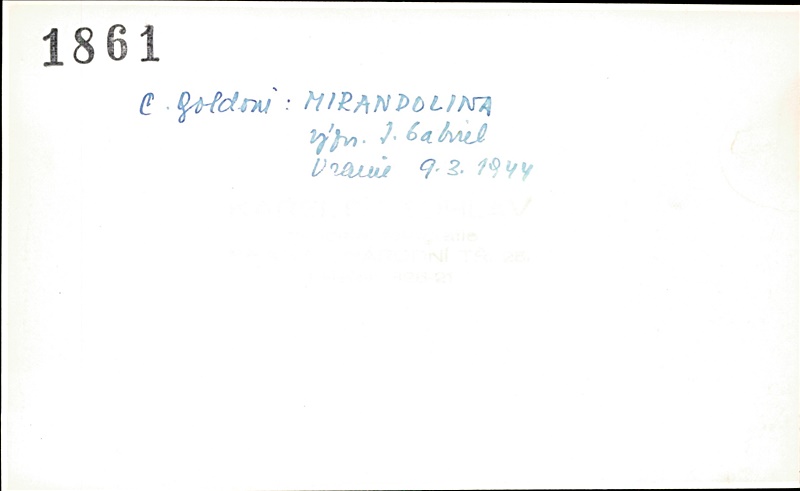 1861
C. Goldoni: MIRANDOLINA
výpr. J. Gabriel
Uranie 9.3.1944